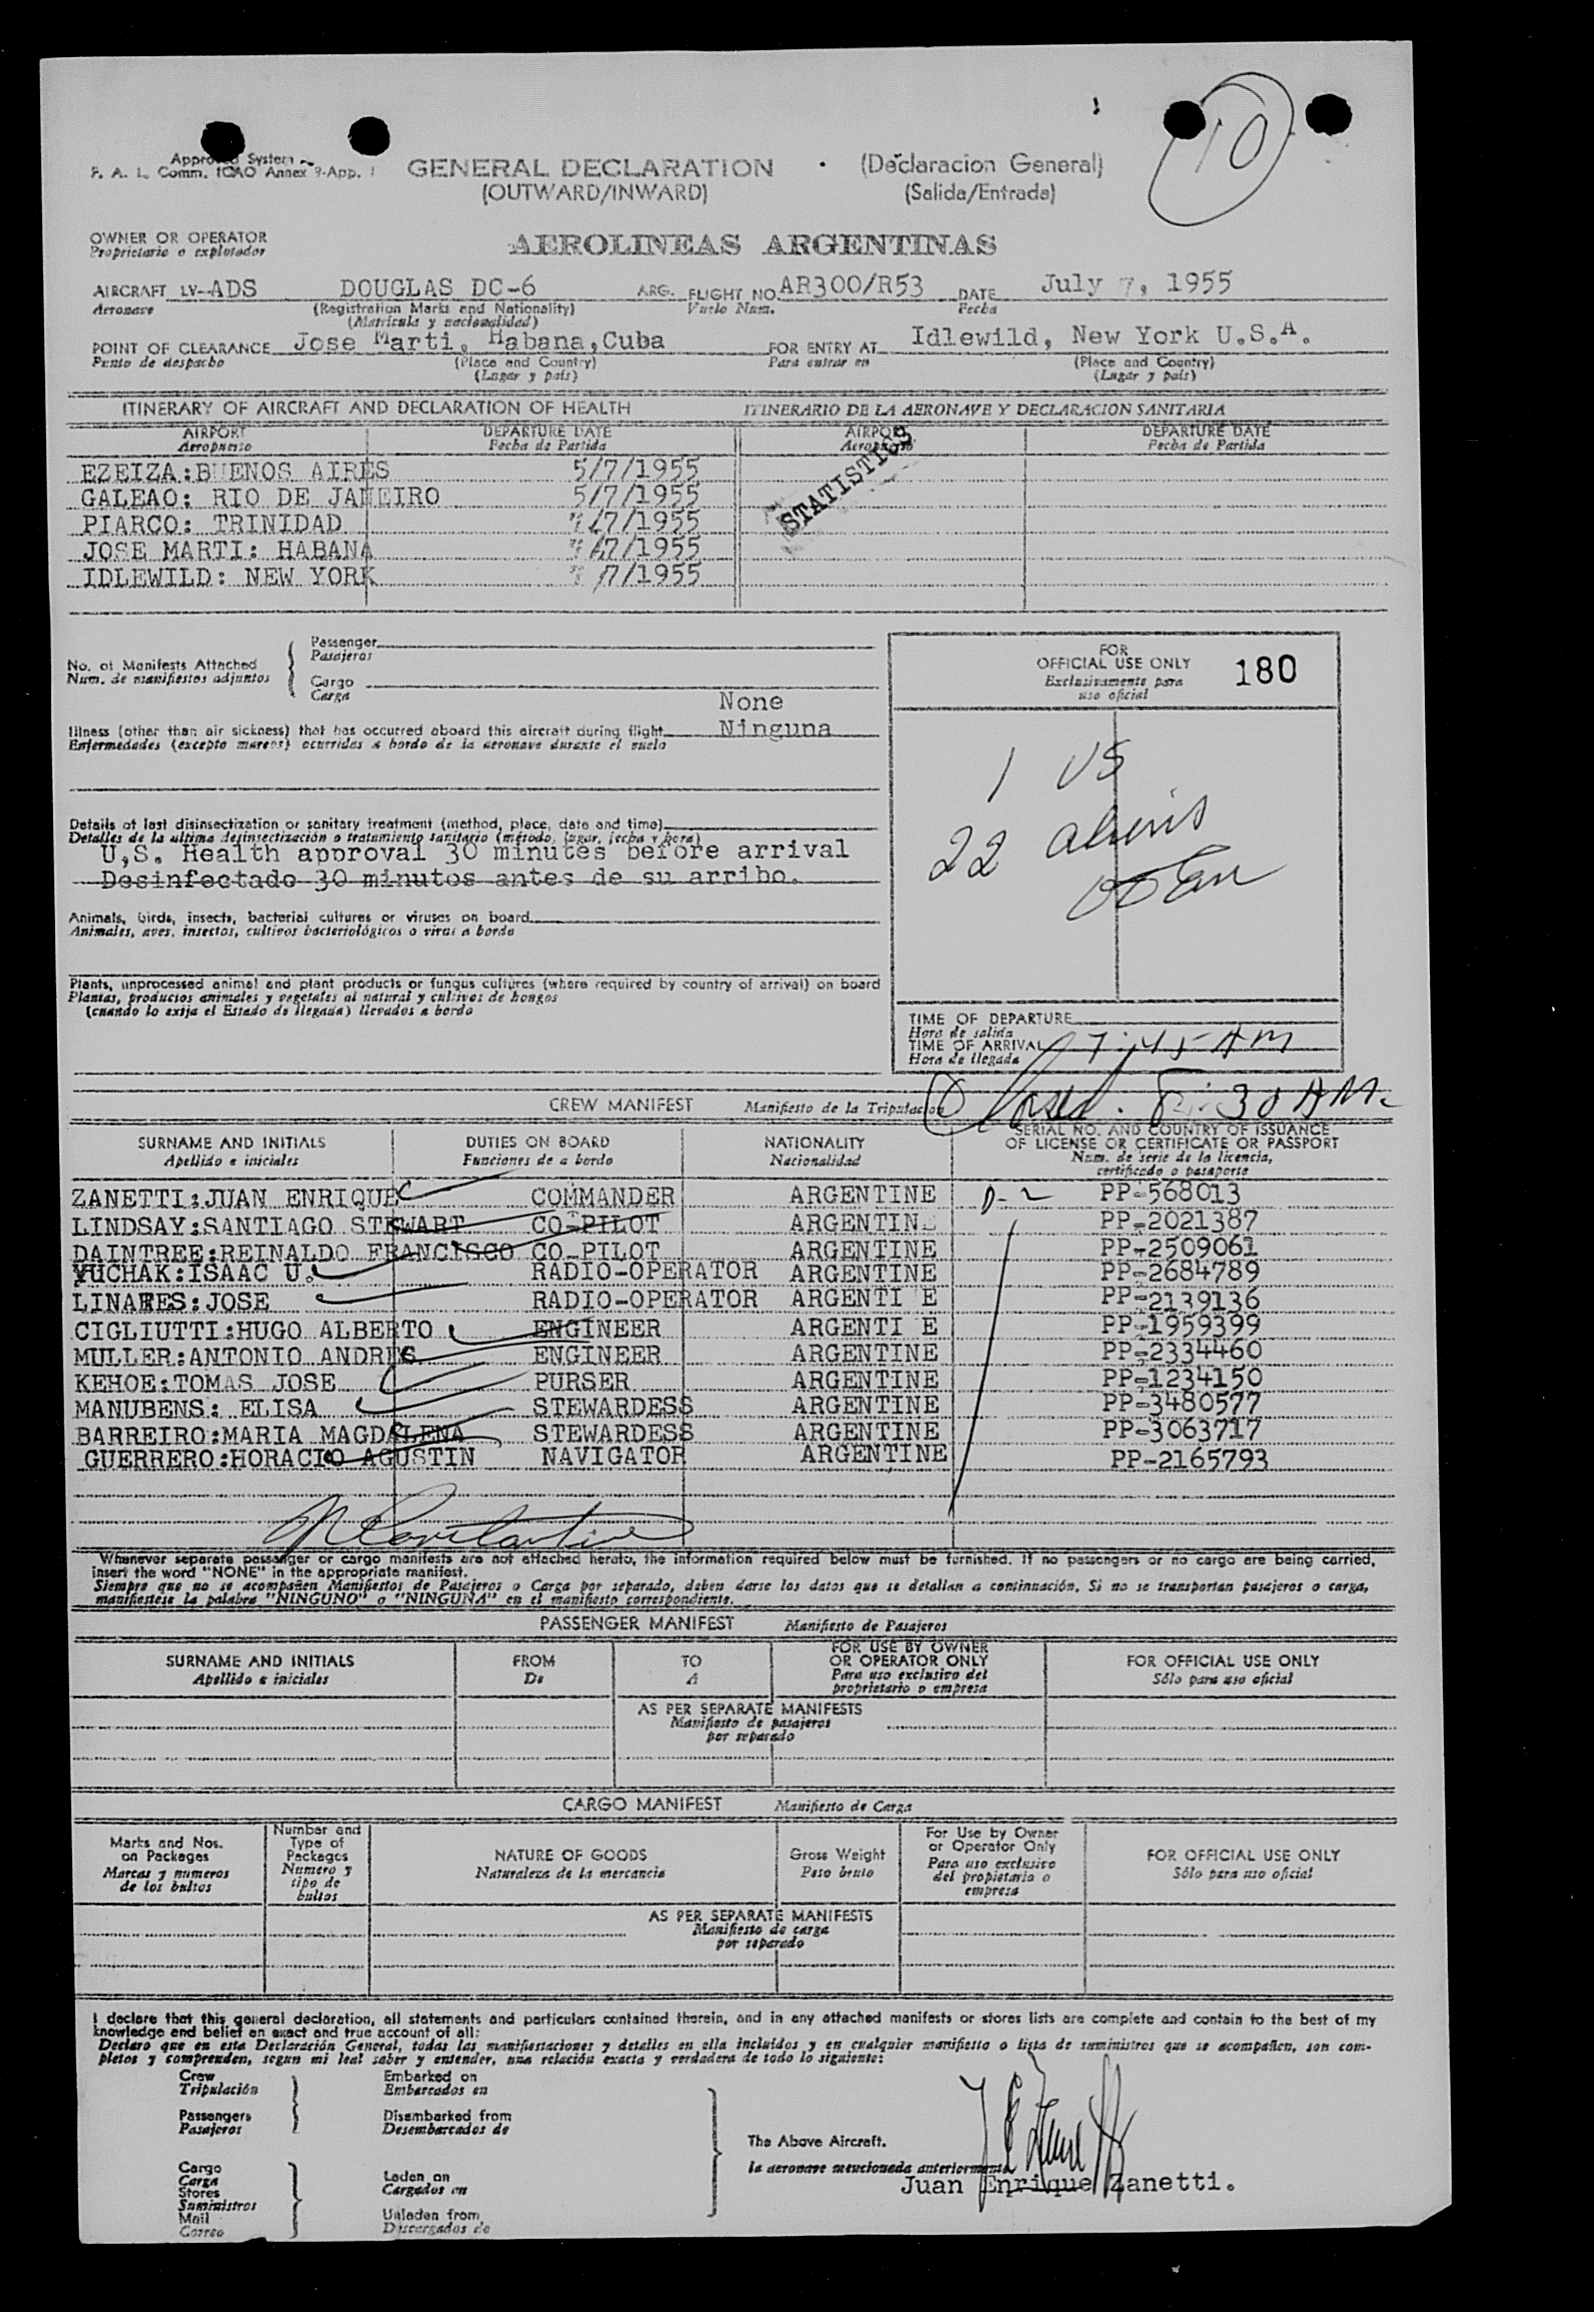 10
Approved System
F. A. L. Comm. ICAO Annex 9-App. 1
GENERAL DECLARATION (Declaracion General)
(OUTWARD/INWARD) (Salida/Entrada)
OWNER OR OPERATOR
Proprietario o explotador
AEROLINEAS ARGENTINAS
AIRCRAFT LV-ADS DOUGLAS DC-6 ARG. FLIGHT NO. AR300/R53 DATE July 7, 1955
Aeronave (Registration Marks and Nationality) Vuelo Num. Fecha
(Matricula y nacionalidad)
POINT OF CLEARANCE Jose Marti, Habana, Cuba FOR ENTRY AT Idlewild, New York U.S.A.
Punto de despacho (Place and Country) Para entrar en (Place and Country)
(Lugar y país) (Lugar y país)
ITINERARY OF AIRCRAFT AND DECLARATION OF HEALTH ITINERARIO DE LA AERONAVE Y DECLARACION SANITARIA
AIRPORT DEPARTURE DATE AIRPORT DEPARTURE DATE
Aeropuerto Fecha de Partida Aeropuerto Fecha de Partida
STATISTICS
EZEIZA:BUENOS AIRES 5/7/1955
GALEAO: RIO DE JANEIRO 5/7/1955
PIARCO: TRINIDAD /7/1955
JOSE MARTI: HABANA /7/1955
IDLEWILD: NEW YORK /7/1955
No. of Manifests Attached
Num. de manifiestos adjuntos
Passenger
Pasajeros
Cargo
Carga
None
Illness (other than air sickness) that has occurred aboard this aircraft during flight Ninguna
Enfermedades (excepto mareos) ocurridas a bordo de la aeronave durante el vuelo
Details of last disinsectization or sanitary treatment (method, place, date and time)
Detalles de la ultima desinsectización o tratamiento sanitario (método, lugar, fecha y hora)
U,S. Health approval 30 minutes before arrival
Desinfectado 30 minutos antes de su arribo.
Animals, birds, insects, bacterial cultures or viruses on board
Animales, aves, insectos, cultivos bacteriológicos o virus a bordo
Plants, unprocessed animal and plant products or fungus cultures (where required by country of arrival) on board
Plantas, productos animales y vegetales al natural y cultivos de hongos
(cuando lo exija el Estado de llegada) llevados a bordo
FOR
OFFICIAL USE ONLY 180
Exclusivamente para
uso oficial
1 US
22 aliens
TIME OF DEPARTURE
Hora de salida
TIME OF ARRIVAL 7:45 AM
Hora de llegada
8:30 AM.
CREW MANIFEST Manifiesto de la Tripulacion
SURNAME AND INITIALS DUTIES ON BOARD NATIONALITY SERIAL NO. AND COUNTRY OF ISSUANCE
OF LICENSE OR CERTIFICATE OR PASSPORT
Apellido e iniciales Funciones de a bordo Nacionalidad Num. de serie de la licencia,
certificado o pasaporte
ZANETTI:JUAN ENRIQUE COMMANDER ARGENTINE D-2 PP-568013
LINDSAY:SANTIAGO STEWART CO-PILOT ARGENTINE PP-2021387
DAINTREE:REINALDO FRANCISCO CO-PILOT ARGENTINE PP-2509061
YUCHAK:ISAAC U. RADIO-OPERATOR ARGENTINE PP-2684789
LINARES:JOSE RADIO-OPERATOR ARGENTI E PP-2139136
CIGLIUTTI:HUGO ALBERTO ENGINEER ARGENTI E PP-1959399
MULLER:ANTONIO ANDRES ENGINEER ARGENTINE PP-2334460
KEHOE:TOMAS JOSE PURSER ARGENTINE PP-1234150
MANUBENS: ELISA STEWARDESS ARGENTINE PP-3480577
BARREIRO:MARIA MAGDALENA STEWARDESS ARGENTINE PP-3063717
GUERRERO:HORACIO AGUSTIN NAVIGATOR ARGENTINE PP-2165793
Whenever separate passenger or cargo manifests are not attached hereto, the information required below must be furnished. If no passengers or no cargo are being carried,
insert the word "NONE" in the appropriate manifest.
Siempre que no se acompañen Manifiestos de Pasajeros o Carga por separado, deben darse los datos que se detallan a continuación. Si no se transportan pasajeros o carga,
manifiestese la palabra "NINGUNO" o "NINGUNA" en el manifiesto correspondiente.
PASSENGER MANIFEST Manifiesto de Pasajeros
SURNAME AND INITIALS FROM TO FOR USE BY OWNER
OR OPERATOR ONLY FOR OFFICIAL USE ONLY
Apellido e iniciales De A Para uso exclusivo del
proprietario o empresa Sólo para uso oficial
AS PER SEPARATE MANIFESTS
Manifiesto de pasajeros
por separado
CARGO MANIFEST Manifiesto de Carga
Marks and Nos.
on Packages
Marcas y numeros
de los bultos
Number and
Type of
Packages
Numero y
tipo de
bultos
NATURE OF GOODS
Naturaleza de la mercancia
Gross Weight
Peso bruto
For Use by Owner
or Operator Only
Para uso exclusivo
del propietario o
empresa
FOR OFFICIAL USE ONLY
Sólo para uso oficial
AS PER SEPARATE MANIFESTS
Manifiesto de carga
por separado
I declare that this general declaration, all statements and particulars contained therein, and in any attached manifests or stores lists are complete and contain to the best of my
knowledge and belief an exact and true account of all:
Declaro que en esta Declaración General, todas las manifestaciones y detalles en ella incluidos y en cualquier manifiesto o lista de suministros que se acompañen, son com-
pletos y comprenden, segun mi leal saber y entender, una relación exacta y verdadera de todo lo siguiente:
Crew
Tripulación
Passengers
Pasajeros
Embarked on
Embarcados en
Disembarked from
Desembarcados de
Cargo
Carga
Stores
Suministros
Mail
Correo
Laden on
Cargados en
Unladen from
Descargados de
The Above Aircraft.
la aeronave mencionada anteriormente
Juan Enrique Zanetti.